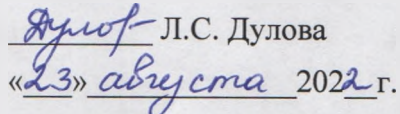 Дулов Л.С. Дулова
«23» августа 2022 г.